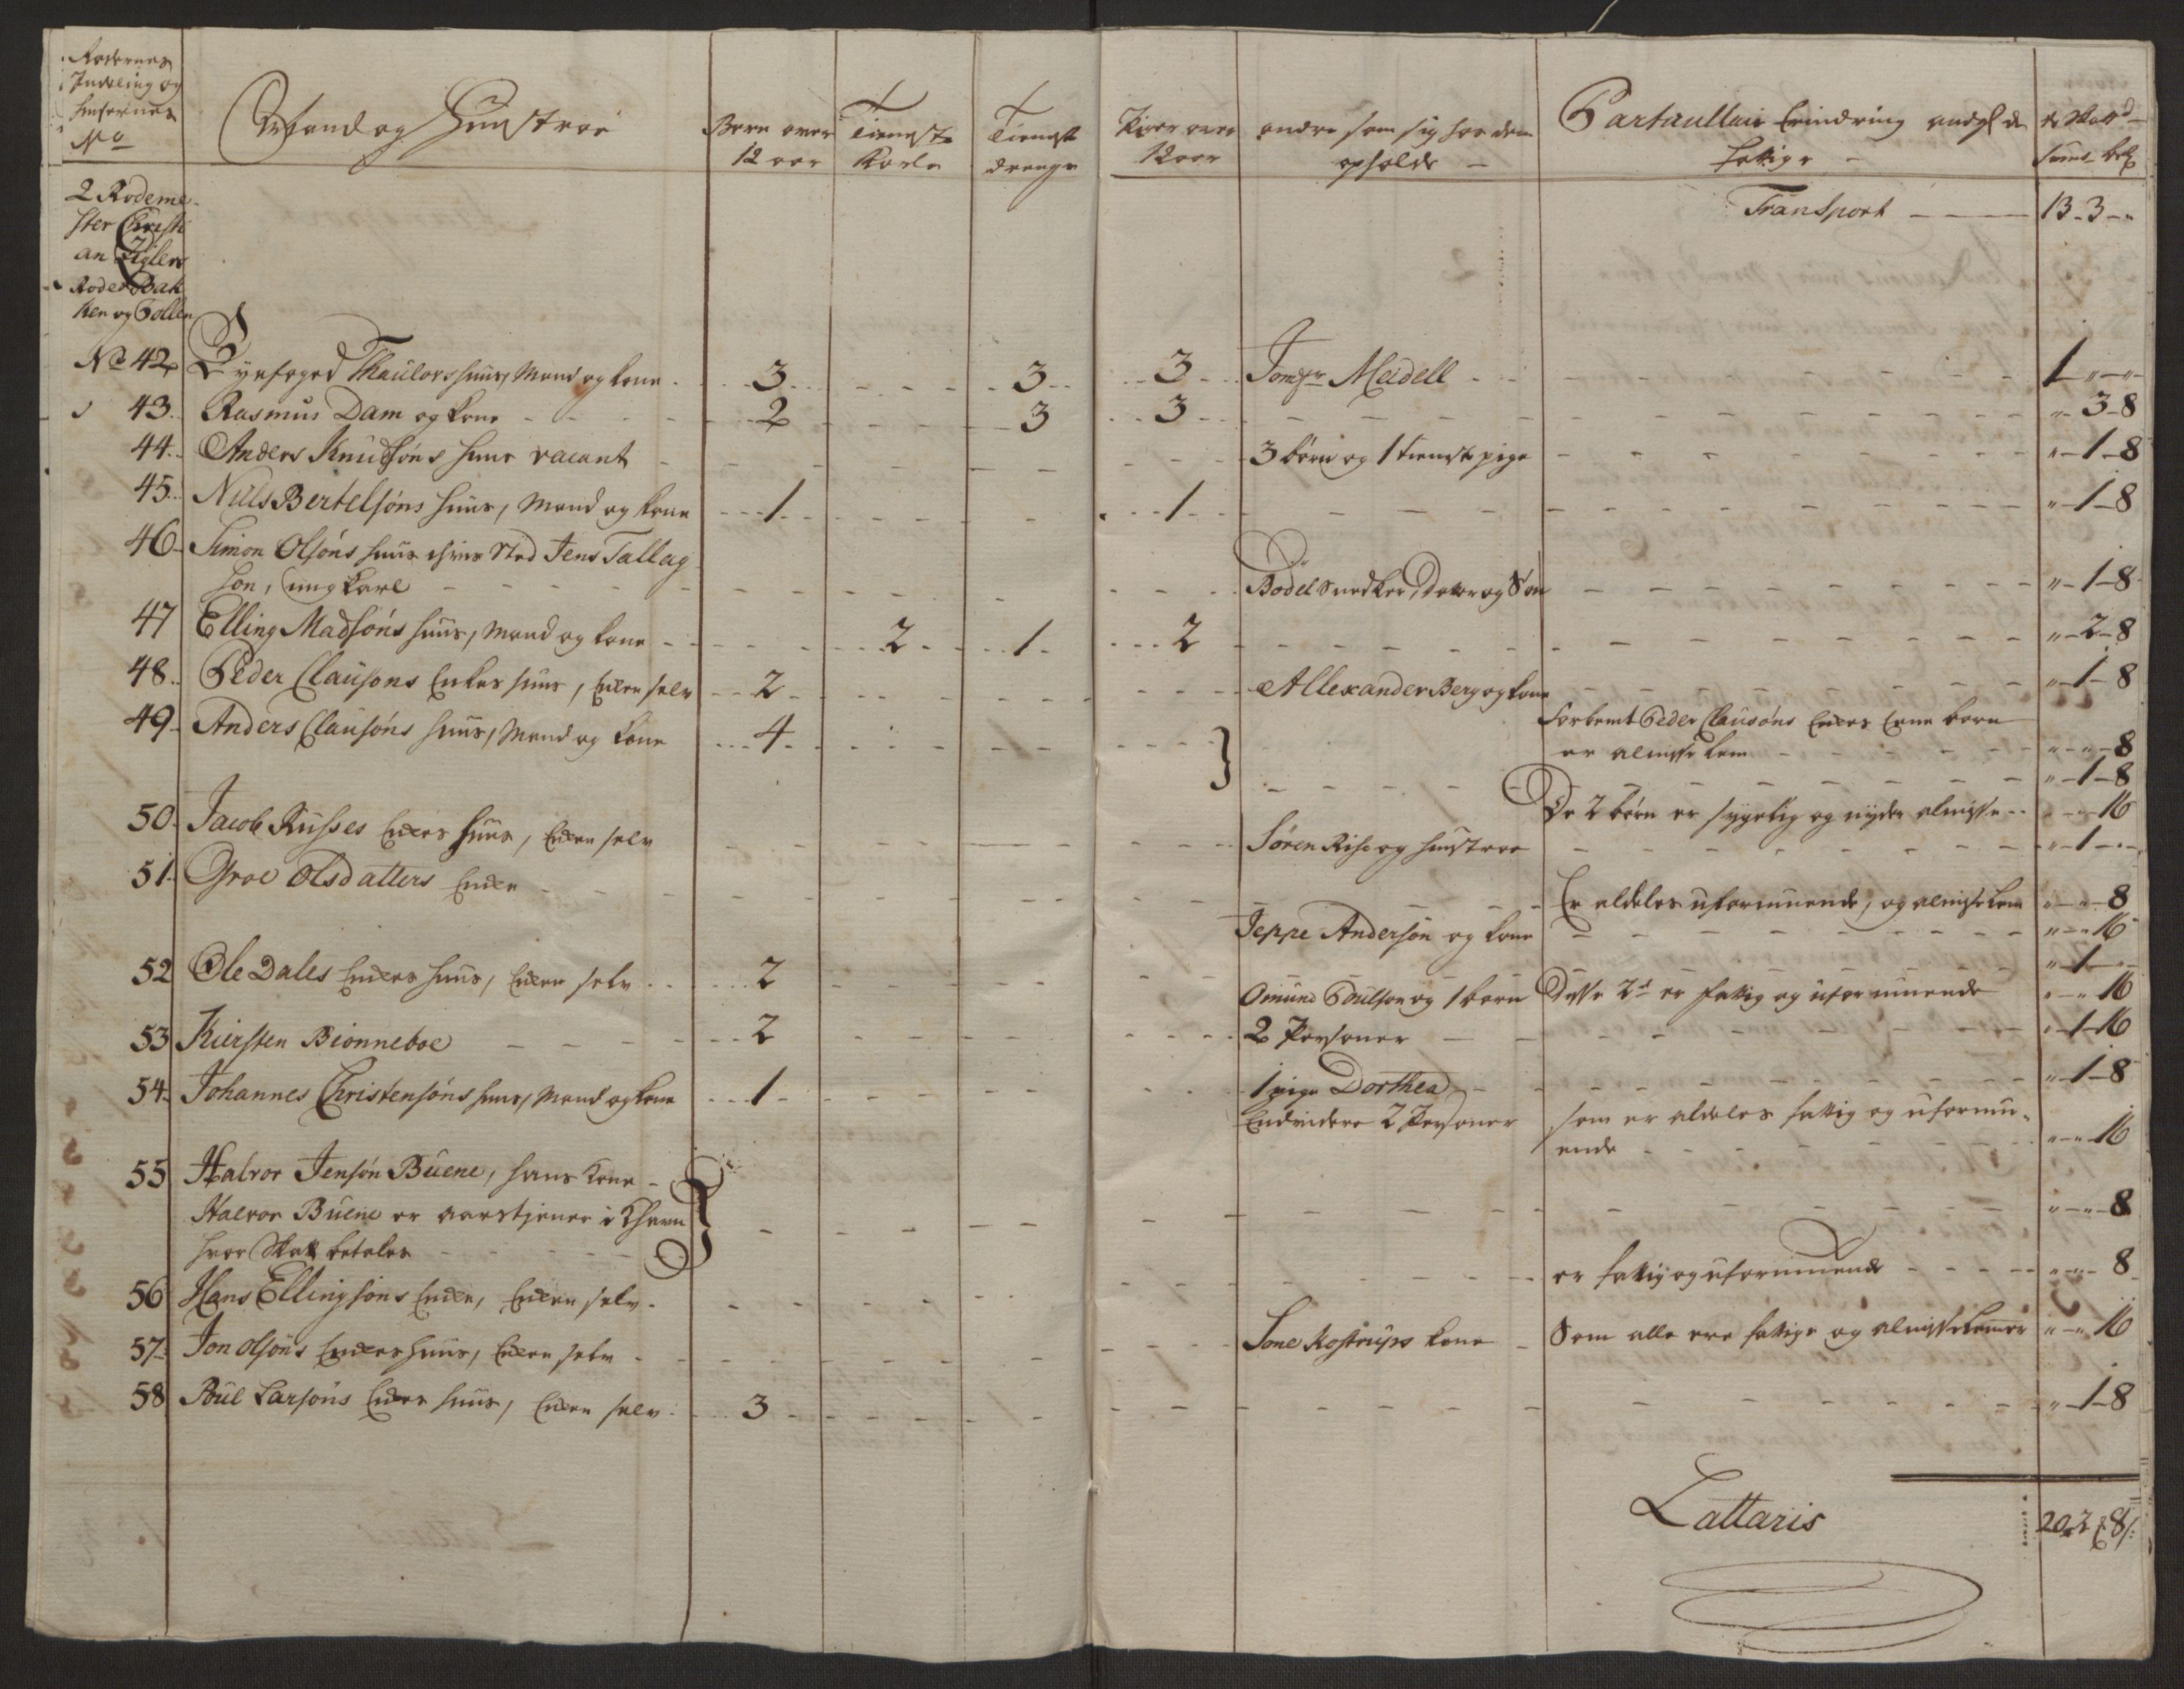 Rodernes
Indeling og
Huusernes
No
Mand og Hustroe
Børn over
12 aar
Tieneste
Karle
Tieneste
drenge
Piger over
12 aar
andre som sig hos dem
opholde -
Particulair Erindring andgl de
fattige -
Skatt
Sums bel
2 Rodeme-
ster Christi
an Ziglers
Rode Bak
ken og Pollen
Transport - 13 - 3 - "
No 42 Byefoged Thaulovs huus, Mand og kone - 3 - 3 - 3 Jomfr Meidell - 1 - " - "
43 Rasmus Dam og kone - 2 - 3 - 3 - " - 3 - 8
44 Anders Knudsøns huus vacant - 3 børn og 1 tieneste pige - " - 1 - 8
45 Niels Bertelsøns huus, Mand og kone - 1 - 1 - " - 1 - 8
46 Simon Olsøns huus i hvis Sted Jens Tallag
søn, ung karl - Bodel Snedker, Datter og Søn - " - 1 - 8
47 Elling Madsøns huus, Mand og kone - 2 - 1 - 2 - " - 2 - 8
48 Peder Clausons Enkes huus, Enken selv - 2 - Allexander Berg og kone - " - 1 - 8
49 Anders Clausøns huus, Mand og kone - 4 -
Forbemt Peder Clausøns Enkes Eene barn
er almisse lem - " - " - 8
" - 1 - 8
50 Jacob Russes Enkes huus, Enken selv
De 2 børn er sygelig og nyder almisse - " - " - 16
Søren Riise og hustroe - " - 1 - "
51 Groe Olsdatters Enken -
Er aldeles uformuende, og almisse lem " - " - 8
Jeppe Andersøn og kone - " - " - 16
52 Ole Dales Enkes huus, Enken selv - 2 - " - 1 - "
Omund Poulson og 1 barn Disse 2de er fattig og uformuende " - " - 16
53 Kiersten Bionneboe - 2 - 2 Persohner - " - 1 - 16
54 Johannes Christensøns huus, Mand og kone - 1 - 1 pige Dorthea - " - 1 - 8
Endvidere 2 Persohner som er aldeles fattig og uformu-
ende - " - " - 16
55 Halvor Jensøn Buene, hans Kone -
Halvor Buene er aarstjener i Khavn
hvor Skatt betales - " - " - 8
56 Hans Ellingsøns Enken, Enken selv - er fattig og uformuende - " - " - 8
57 Jon Olsøns Enkes huus, Enken selv - Sone Kostrups kone - Som alle ere fattige og almisselemer " - " - 16
58 Poul Larsøns Enkes huus, Enken selv - 3 - " - 1 - 8
Lattaris 20 - 2 - 8